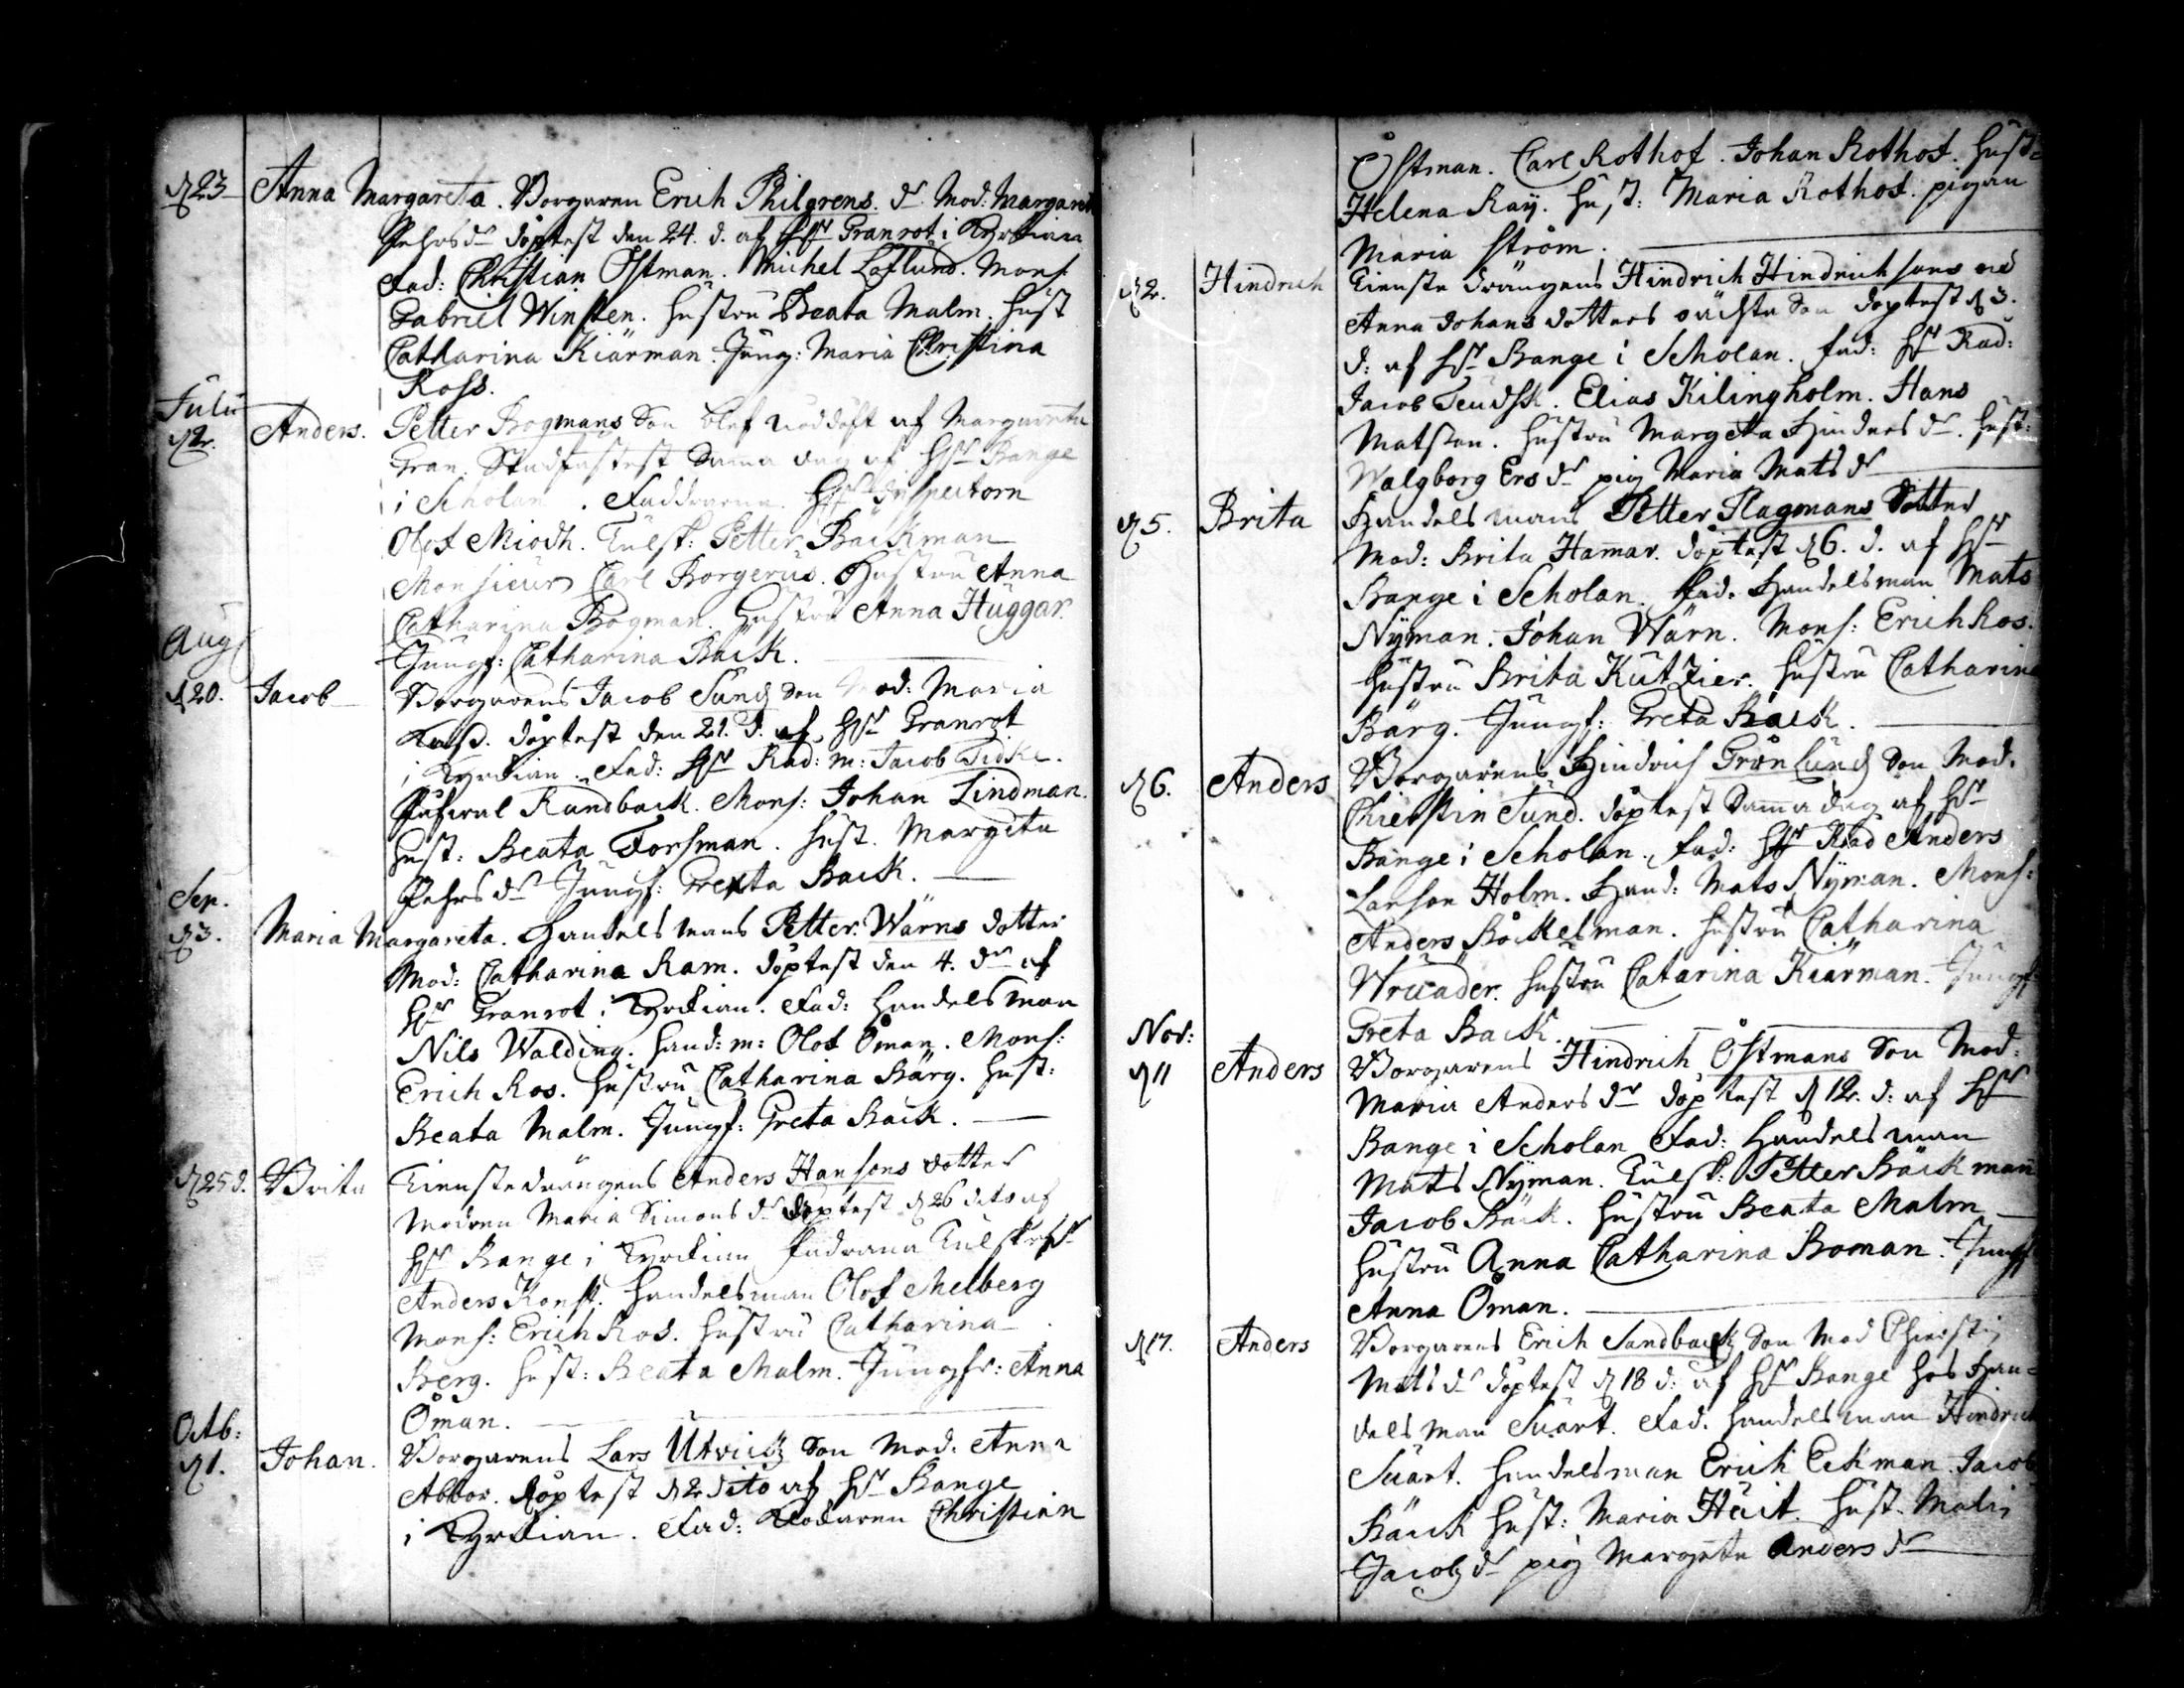 d 23 Anna Margareta. Borgaren Erich Philgrens. dr Mod: Margaret
Pehrsdr döptest den 24. d. af Hr Granrot i Kyrkian
Fad: Christian Östman. Michel Löflund. Mons:
Gabriel Winsten. Hustru Beata Malm. Hust
Catharina Kiärman. Jung: Maria Christina
Ross.
Julii
d 2. Anders. Petter Bogmans Son blef nöddöft af Margareta
Gran. Stadfästest Samma dag af Hr Bange
i Scholan. Faddrarna. Hr Inspectorn
Olof Miödh. Tulsk: Petter Bäckman
Monsieur Carl Borgerus. Hustru Anna
Catharina Bogman. Hustru Anna Huggar.
Jungf: Catharina Bäck.
Aug
d 20. Jacob Borgarens Jacob Sund Son Mod: Maria
döptest den 21. d. af Hr Granrot
i Kyrkian. Fad: Hr Råd: m: Jacob Tidke.
Randback. Mons: Johan Lindman.
Hust: Beata Forsman. Hust. Margeta
Pehrsdr Jungf: Greta Back.
Sep.
d 3. Maria Margareta. Handelsmans Petter Wärns dotter
Mod: Catharina Ram. döptest den 4. dr af
Hr Granrot i Kyrkian. Fad: Handelsman
Nils Walding. Hand: m: Olof Öman. Mons:
Erich Ros. Hustru Catharina Bärg. Hust:
Beata Malm. Jungf: Greta Back.
d 25 d. Brita Tienstedrängens Anders Hansons dotter
Modren Maria Simons dr döptest d 26 dito af
Hr Bange i Kyrkian Fadrarna
Anders Konst. Handelsman Olof Melberg
Mons: Erich Ros. Hustru Catharina
Berg. Hust: Beata Malm. Jungfr: Anna
Öman.
Octb:
d 1. Johan. Borgarens Lars Utvick Son Mod. Anna
Abbor. döptest d 2 dito af Hr Bange
i Kyrkian. Fad: Christian
Östman. Carl Rothof. Johan Rothof. Hust:
Helena Raÿ. Hust: Maria Rothof. pigan
Maria Ström.
d 2. Hindrich Tienste drängens Hindrich Hindrichsons och
Anna Johans dotters oächta Son döptest d 3.
d: af Hr Bange i Scholan. Fad: Hr Råd:
Jacob Teudsk. Elias Kilingholm. Hans
Matsson. Hustru Margeta Hinders dr. Hust:
Walgborg Ersdr pig Maria Mats dr
d 5. Brita Handelsmans Petter Plagmans Dotter
Mod: Brita Hamar. döptest d 6. d. af Hr
Bange i Scholan. Fad. Handelsman Mats
Nÿman. Johan Wärn. Mons: Erich Ros.
Hustru Brita Kutzier. Hustru Catharina
Bärg. Jungf: Greta Back.
d 6. Anders Borgarens Hindrich Grönlund Son Mod.
Chierstin Sund. döptest Samma dag af Hr
Bange i Scholan. Fad: Hr Råd Anders
Larson Holm. Hand: Mats Nÿman. Mons:
Anders Böckelman. Hustru Catharina
Wruader. Hustru Catarina Kiärman. Jungf:
Greta Back.
Nov:
d 11 Anders Borgarens Hindrich Östmans Son Mod:
Maria Anders dr döptest d 12. d: af Hr
Bange i Scholan Fad: Handelsman
Mats Nÿman. Tulsk: Petter Bäckman
Jacob Bäck. Hustru Beata Malm
Hustru Anna Catharina Boman. Jungf
Anna Öman.
d 17. Anders Borgarens Erich Sandback Son Mod Chiersti
Mats dr döptest d 18 d: af Hr Bange hos Han=
delsman Suart. Fad. Handelsman Hindrich
Suart. Handelsman Erich Eckman Jacob
Bäck Hust: Maria Huit. Hust. Mali
Jacobs dr pig Margeta Anders dr